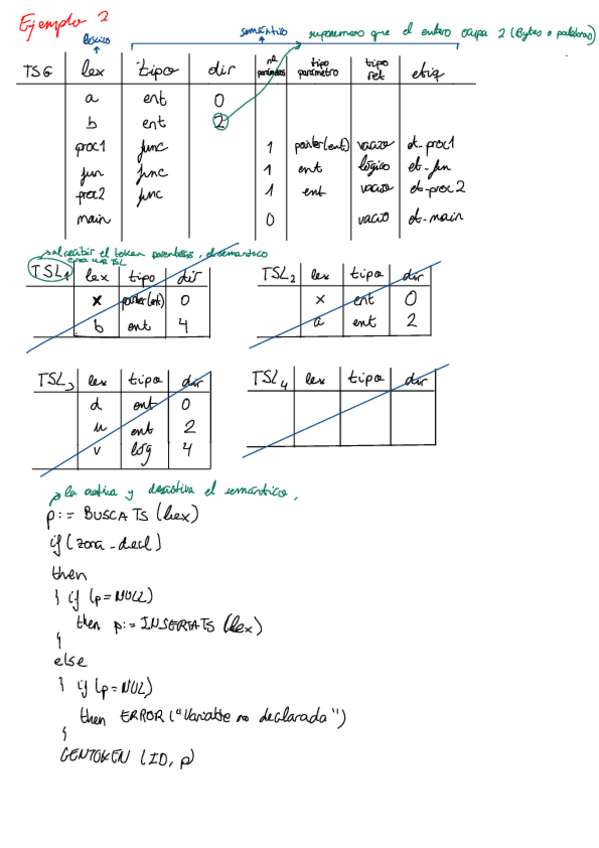 Ejemplo 2
léxico
semántico
suponemos que el entero ocupa 2 (Bytes o palabras)
TSG lex tipo dir nº parámetros tipo parámetro tipo ret etiq
a ent 0
b ent 2
proc1 func 1 pointer(ent) vacío et-proc1
fun func 1 ent lógico et-fun
proc2 func 1 ent vacío et-proc2
main 0 vacío et-main
al recibir el token parentesis, el semántico
crea una TSL
TSL1 lex tipo dir
x pointer(ent) 0
b ent 4
TSL2 lex tipo dir
x ent 0
a ent 2
TSL3 lex tipo dir
d ent 0
u ent 2
v log 4
TSL4 lex tipo dir
la activa y desactiva el semántico.
p:= BUSCATS (lex)
if (zona_decl)
then
{ if (p=NULL)
then p:= INSERTATS (lex)
}
else
{ if (p=NULL)
then ERROR ("Variable no declarada")
}
GENTOKEN (ID, p)